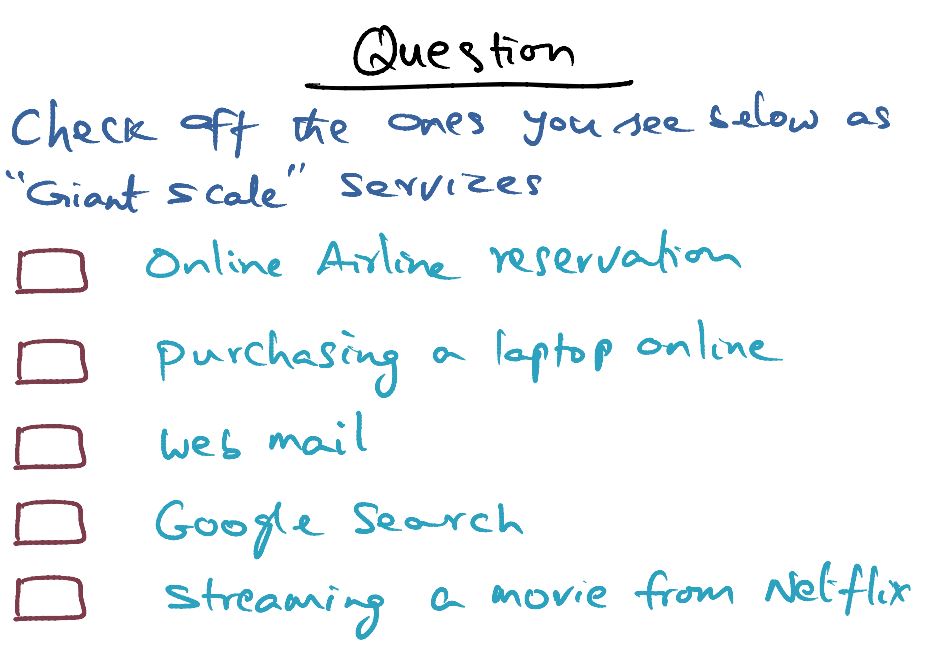 Question
Check off the ones you see below as
"Giant scale" services
Online Airline reservation
purchasing a laptop online
web mail
Google search
streaming a movie from Netflix